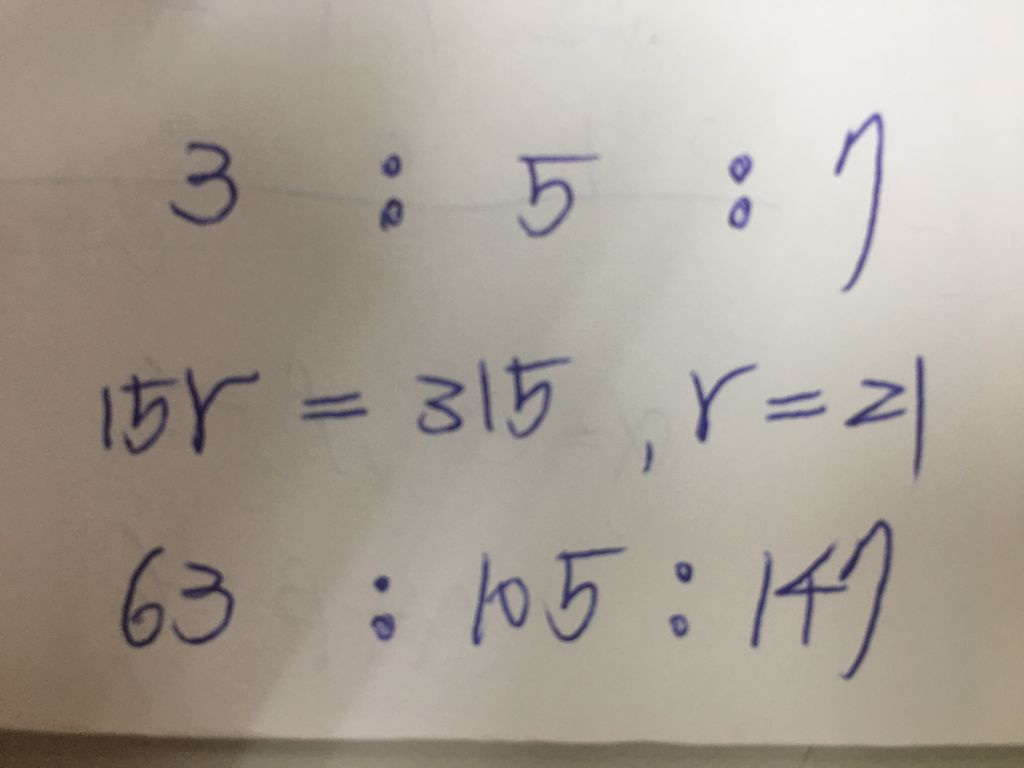 3 : 5 : 7
15r = 315, r = 21
63 : 105 : 147